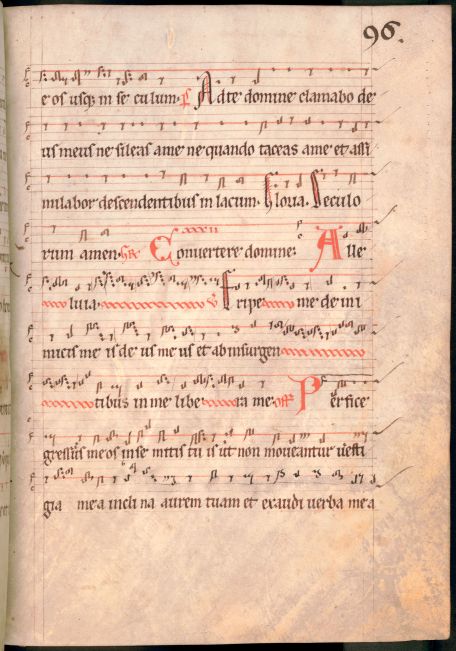 96.
e os usq; in se culum. Ps Ad te domine clamabo de
us meus ne sileas a me ne quando taceas a me et assi
milabor descendentibus in lacum. Gloria. Seculo
rum amen. Gr. Convertere domine. xxxii Alle
luia. V Eripe me de ini
micis me is de us me us et ab insurgen
tibus in me libe ra me. off Perfice
gressus meos in se mitis tu is ut non moveantur vesti
gia mea incli na aurem tuam et exaudi verba mea